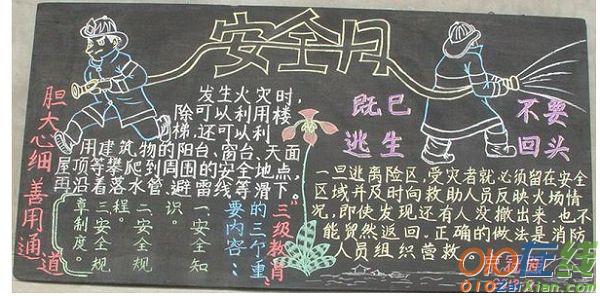 安全月
胆大心细
善用通道
发生火灾时,
除可以利用楼
梯,还可以利
用建筑物的阳台、窗台、天面
屋顶等攀爬到周围的安全地点,
再沿着落水管、避雷线等滑下。
三级教育
的三个重
要内容:
一安全知
识。
二安全规
程。
三安全规
章制度。
既已
逃生
不要
回头
一旦逃离险区,受灾者就必须留在安全
区域并及时向救助人员反映火场情
况,即使发现还有人没撤出来.也不
能贸然返回.正确的做法是消防
人员组织营救。
010在线
010zaixian.com